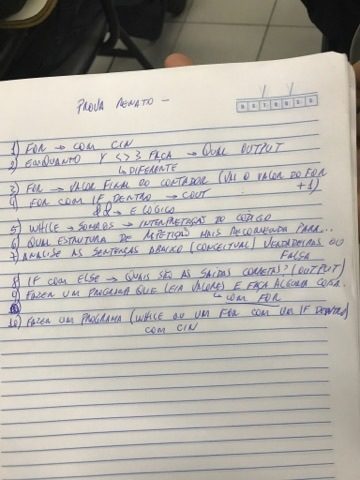 PROVA RENATO -
1) FOR → COM CIN
2) ENQUANTO Y <> 3 FAÇA → QUAL OUTPUT
↳ DIFERENTE
3) FOR → VALOR FINAL DO CONTADOR (VAI O VALOR DO FOR
+1)
4) FOR COM IF DENTRO → COUT
&& → E LÓGICO
5) WHILE → SOMADOS → INTERPRETAÇÃO DO CÓDIGO
6) QUAL ESTRUTURA DE REPETIÇÃO MAIS RECOMENDADA PARA...
7) ANALISE AS SENTENÇAS ABAIXO (CONCEITUAL) VERDADEIRAS OU
FALSA
8) IF COM ELSE → QUAIS SÃO AS SAÍDAS CORRETAS? (OUTPUT)
9) FAZER UM PROGRAMA QUE (LEIA VALORES) E FAÇA ALGUMA COISA.
↳ COM FOR
10) FAZER UM PROGRAMA (WHILE OU UM FOR COM UM IF DENTRO)
COM CIN